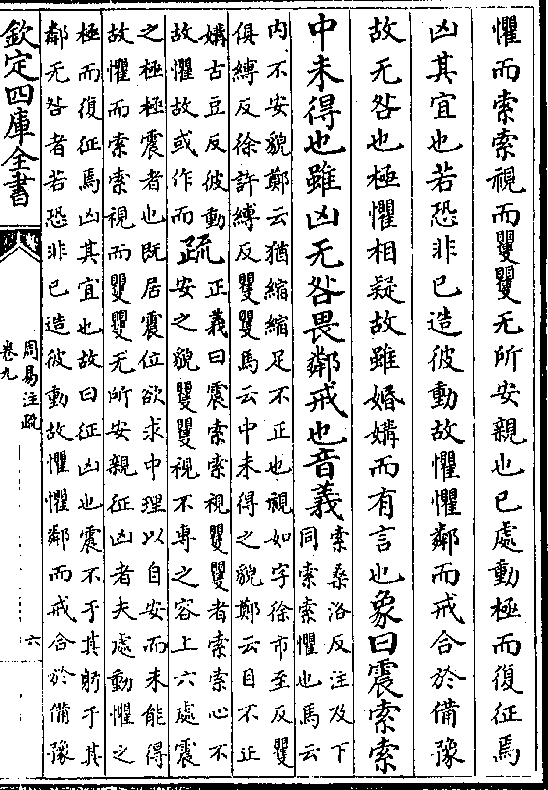 懼而索索視而矍矍无所安親也已處動極而復征焉
凶其宜也若恐非已造彼動故懼懼鄰而戒合於備豫
故无咎也極懼相疑故雖婚媾而有言也象曰震索索
中未得也雖凶无咎畏鄰戒也音義
索桑洛反注及下
同索索懼也馬云
内不安貌鄭云猶縮縮足不正也視如字徐市至反矍
俱縛反徐許縛反矍矍馬云中未得之貌鄭云目不正
媾古豆反彼動
故懼故或作而
疏
正義曰震索索視矍矍者索索心不
安之貌矍矍視不專之容上六處震
之極極震者也既居震位欲求中理以自安而未能得
故懼而索索視而矍矍无所安親征凶者夫處動懼之
極而復征焉凶其宜也故曰征凶也震不于其躬于其
鄰无咎者若恐非已造彼動故懼懼鄰而戒合於備豫
欽定四庫全書
周易注疏
卷九
六